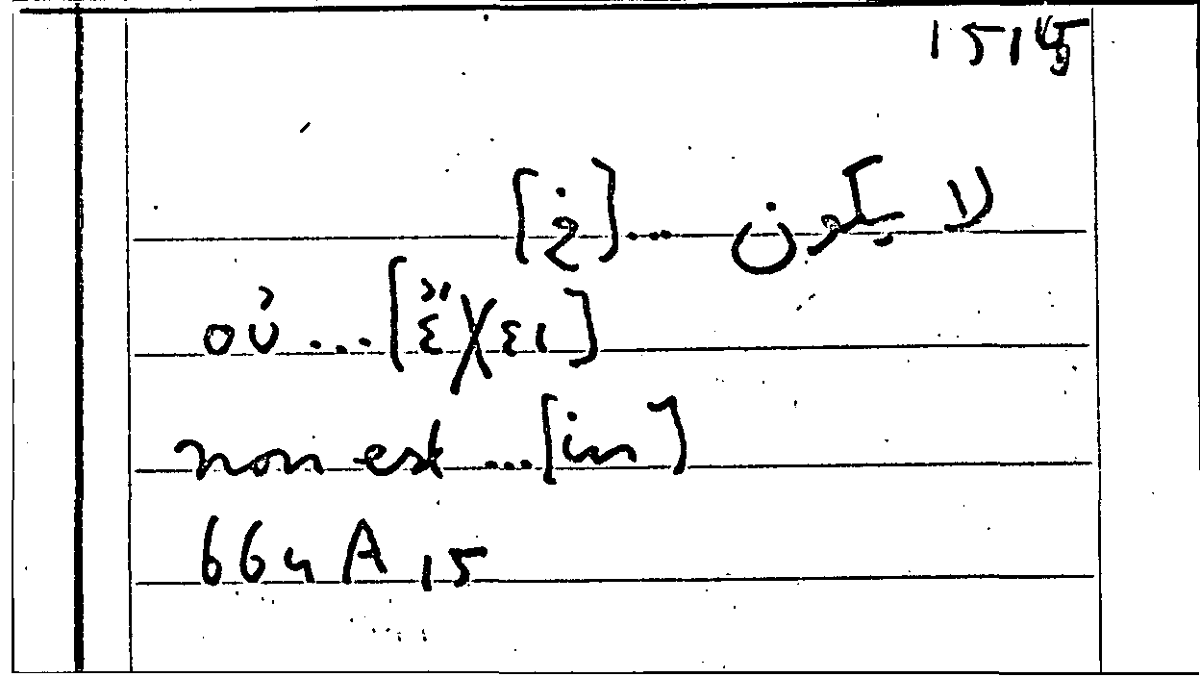 1515
لا يكون ... [في]
οὐ ... [ἔχει]
non est ... [in]
664 A 15